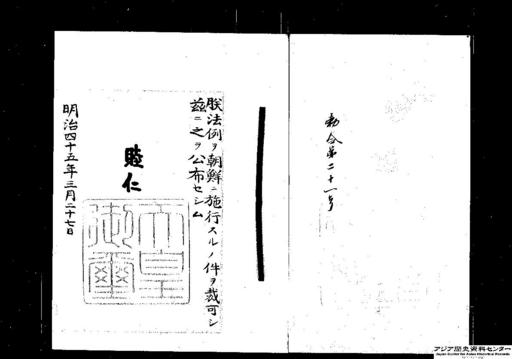 勅令第二十一号
朕法例ヲ朝鮮ニ施行スルノ件ヲ裁可シ
茲ニ之ヲ公布セシム
睦仁
天皇
御璽
明治四十五年三月二十七日
アジア歴史資料センター
Japan Center for Asian Historical Records